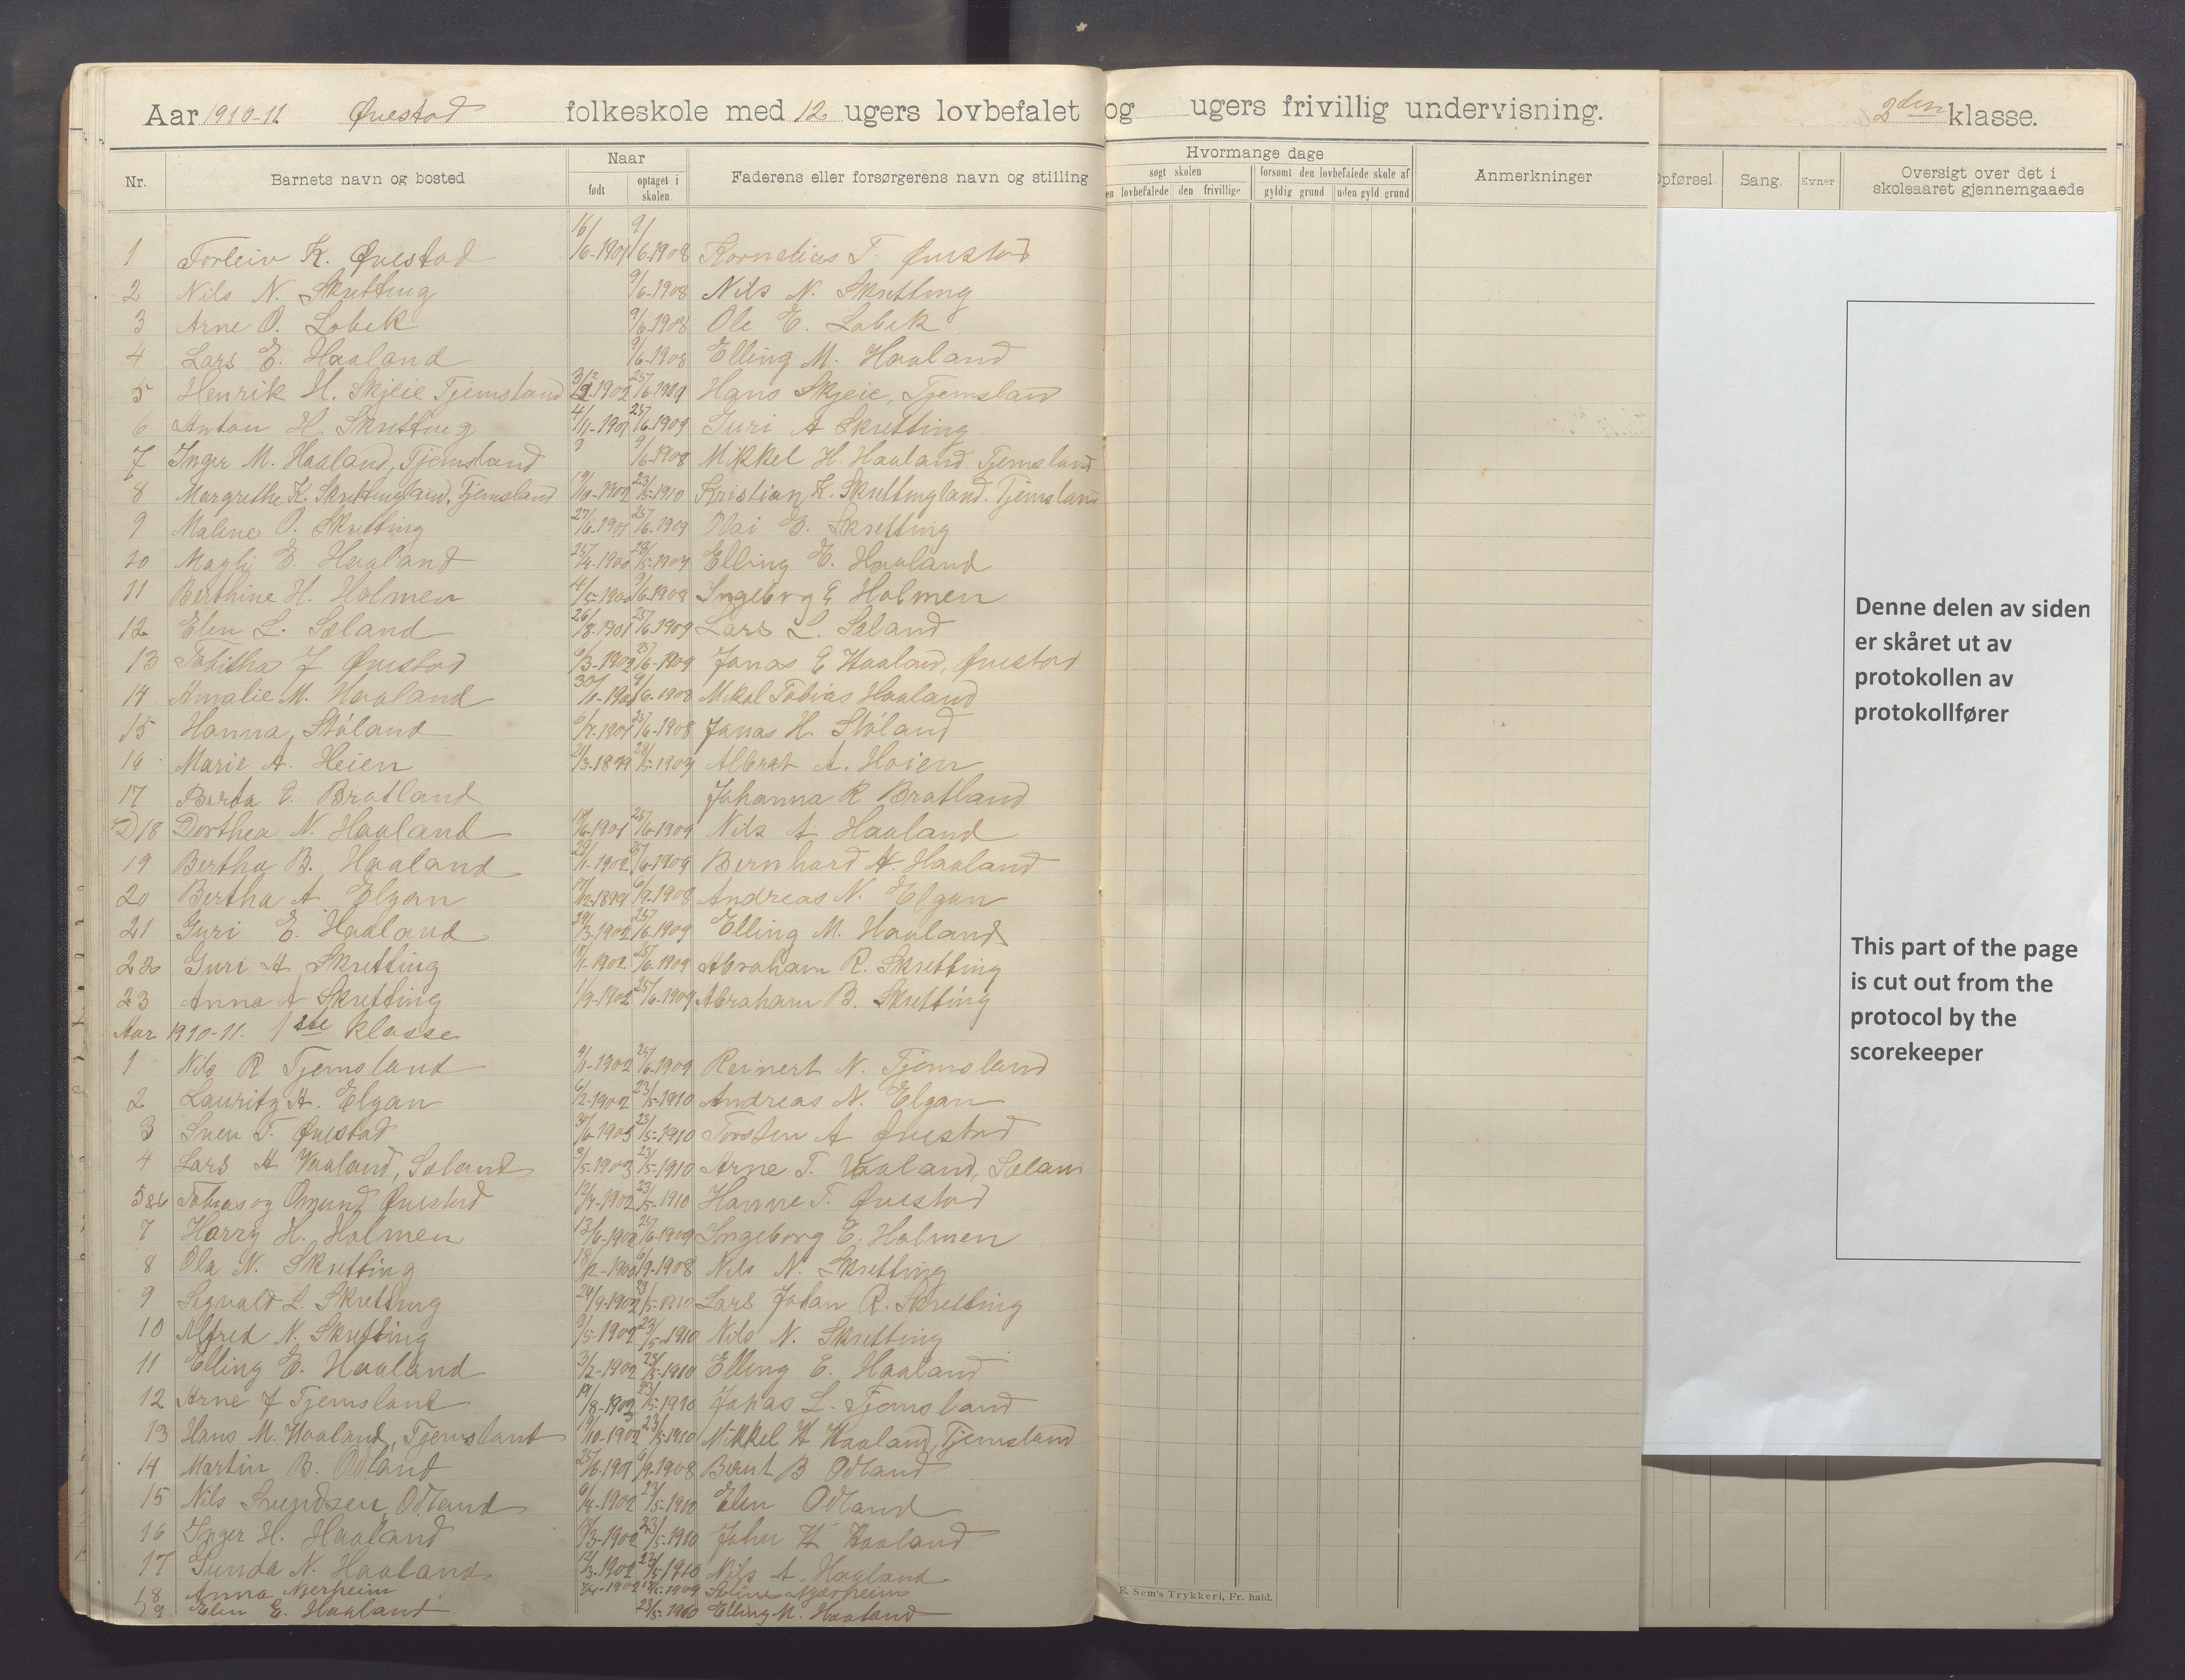 Aar 1910-11 Øvestad folkeskole med 12 ugers lovbefalet og ugers frivillig undervisning. 2den klasse.
Nr. Barnets navn og bosted Naar født optaget i skolen. Faderens eller forsørgerens navn og stilling Hvormange dage søgt skolen en lovbefalede den frivillige forsømt den lovbefalede skole af gyldig grund uden gyld. grund Anmerkninger Opførsel. Sang. Evner Oversigt over det i skoleaaret gjennemgaaede
1 Torleiv K. Øvestad 16/6-1901 9/6-1908 Kornelius T. Øvestad
2 Nils N. Skretting 9/6-1908 Nils N. Skretting
3 Arne O. Lobek 9/6-1908 Ole E. Lobek
4 Lars E. Haaland 9/6-1908 Elling M. Haaland
5 Henrik H. Skjeie Tjemsland 25/6-1909 Hans Skjeie, Tjemsland
6 Anton H. Skretting 25/6-1909 Guri A Skretting
7 Inger M. Haaland, Tjemsland 9/6-1908 Mikkel H. Haaland. Tjemsland
8 Margrethe K. Skrettingland, Tjemsland 23/5-1910 Kristian K. Skrettingland. Tjemsland
9 Malene O. Skretting 27/6-1901 25/6-1909 Olai E. Skretting
10 Magli E. Haaland 25/4-1900 28/5-1907 Elling E. Haaland
11 Berthine H. Holmen 4/5-1900 9/6-1908 Ingeborg E Holmen
12 Elen L. Sæland 26/8-1901 25/6-1909 Lars L. Sæland
13 Tabitha J Øvestad 6/3-1902 25/6-1909 Jonas E Haaland, Øvestad
14 Amalie M. Haaland 30/1-1901 9/6-1908 Mikal Tobias Haaland
15 Hanna, Støland 25/6-1908 Jonas H. Støland
16 Marie A. Heien 21/3-1899 28/5-1907 Albrat A. Hoien
17 Berta E. Bratland Johanna R Bratland
D 18 Dorthea N. Haaland 18/6-1901 25/6-1909 Nils A. Haaland
19 Bertha B. Haaland 29/1-1902 25/6-1909 Bernhard A. Haaland
20 Bertha A Elgan 17/12-1899 6/9-1908 Andreas N. Elgan
21 Guri E. Haaland 29/3-1902 25/6-1909 Elling M. Haaland
22 Guri A Skretting 25/6-1909 Abraham R. Skretting
23 Anna A Skretting 1/9-1902 25/6-1909 Abraham B. Skretting
Aar 1910-11. 1ste klasse
1 Nils R Tjemsland 4/1-1902 25/6-1909 Reinert N. Tjemsland
2 Lauritz A. Elgan 6/2-1902 23/5-1910 Andreas N. Elgan
3 Sven T. Øvestad 23/5-1910 Torsten A Øvestad
4 Lars A Vaaland, Sæland 3/5-1903 23/5-1910 Arne T. Vaaland, Sæland
5&6 Tobias og Omund Øvestad 23/5-1910 Hanne T. Øvestad
7 Harry H. Holmen 25/6-1909 Ingeborg E. Holmen
8 Ola N. Skretting 6/9-1908 Nils N. Skretting
9 Sigvald L. Skretting 24/9-1902 23/5-1910 Lars Johan R. Skretting
10 Alfred N. Skretting 9/5-1902 23/5-1910 Nils N. Skretting
11 Elling E. Haaland 3/2-1902 23/5-1910 Elling E. Haaland
12 Arne J Tjemsland 23/5-1910 Jonas L. Tjemsland
13 Hans M. Haaland, Tjemsland 19/10-1902 23/5-1910 Mikkel H Haaland, Tjemsland
14 Martin B. Odland 25/6-1901 6/9-1908 Bernt B Odland
15 Nils Svendsen Odland 23/5-1910 Elen Odland
16 Inger H. Haaland 23/5-1910 H Haaland
17 Gunda N. Haaland 12/3-1902 23/5-1910 Nils A. Haaland
18 Anna Njerheim Njærheim
19 Elen E. Haaland 23/5-1910 Elling M. Haaland
E. Sem's Trykkeri, Fr. hald.
Denne delen av siden
er skåret ut av
protokollen av
protokollfører
This part of the page
is cut out from the
protocol by the
scorekeeper